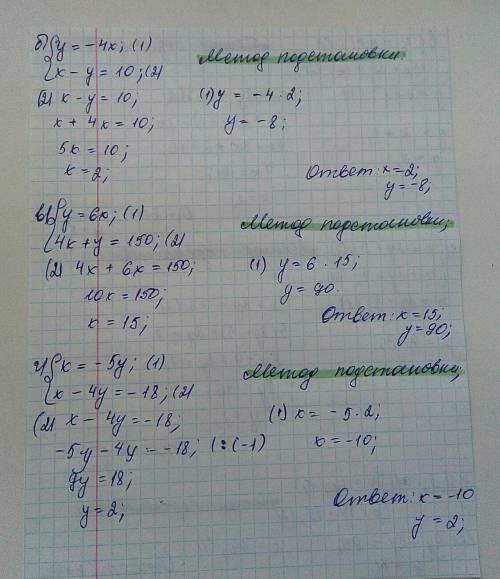 б) { y = -4x; (1)
x - y = 10; (2)
Метод подстановки.
(2) x - y = 10;
(1) y = -4 · 2;
x + 4x = 10;
y = -8;
5x = 10;
x = 2;
Ответ: x=2;
y=-8;
в) { y = 6x; (1)
4x + y = 150; (2)
Метод подстановки;
(2) 4x + 6x = 150;
(1) y = 6 · 15;
10x = 150;
y = 90.
x = 15;
Ответ: x = 15;
y = 90;
г) { x = -5y; (1)
x - 4y = -18; (2)
Метод подстановки;
(2) x - 4y = -18;
(1) x = -5·2;
-5y - 4y = -18; (:(-1)
x = -10;
9y = 18;
y = 2;
Ответ: x = -10
y = 2;